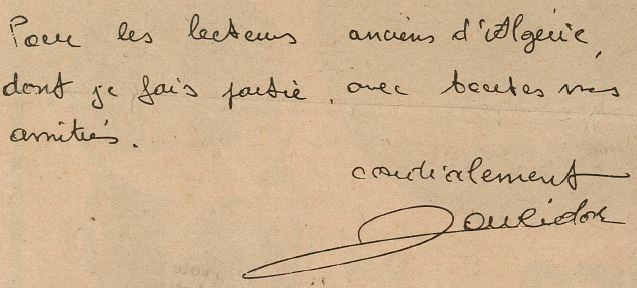 Pour les lecteurs anciens d'Algérie,
dont je fais partie, avec toutes mes
amitiés.
cordialement
Poulidor